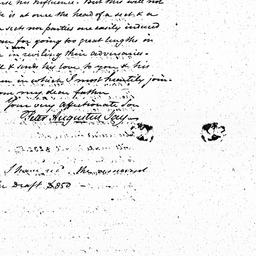 his influence. But this will not
is at once the head of a sect & a
sects nor parties are easily induced
for going too great lengths in
in reviling their adversaries.
& sends his love to you & his
in which I most heartily join.
my dear father
Your very affectionate son
Peter Augustus Jay
I have rec'd the
Draft $850